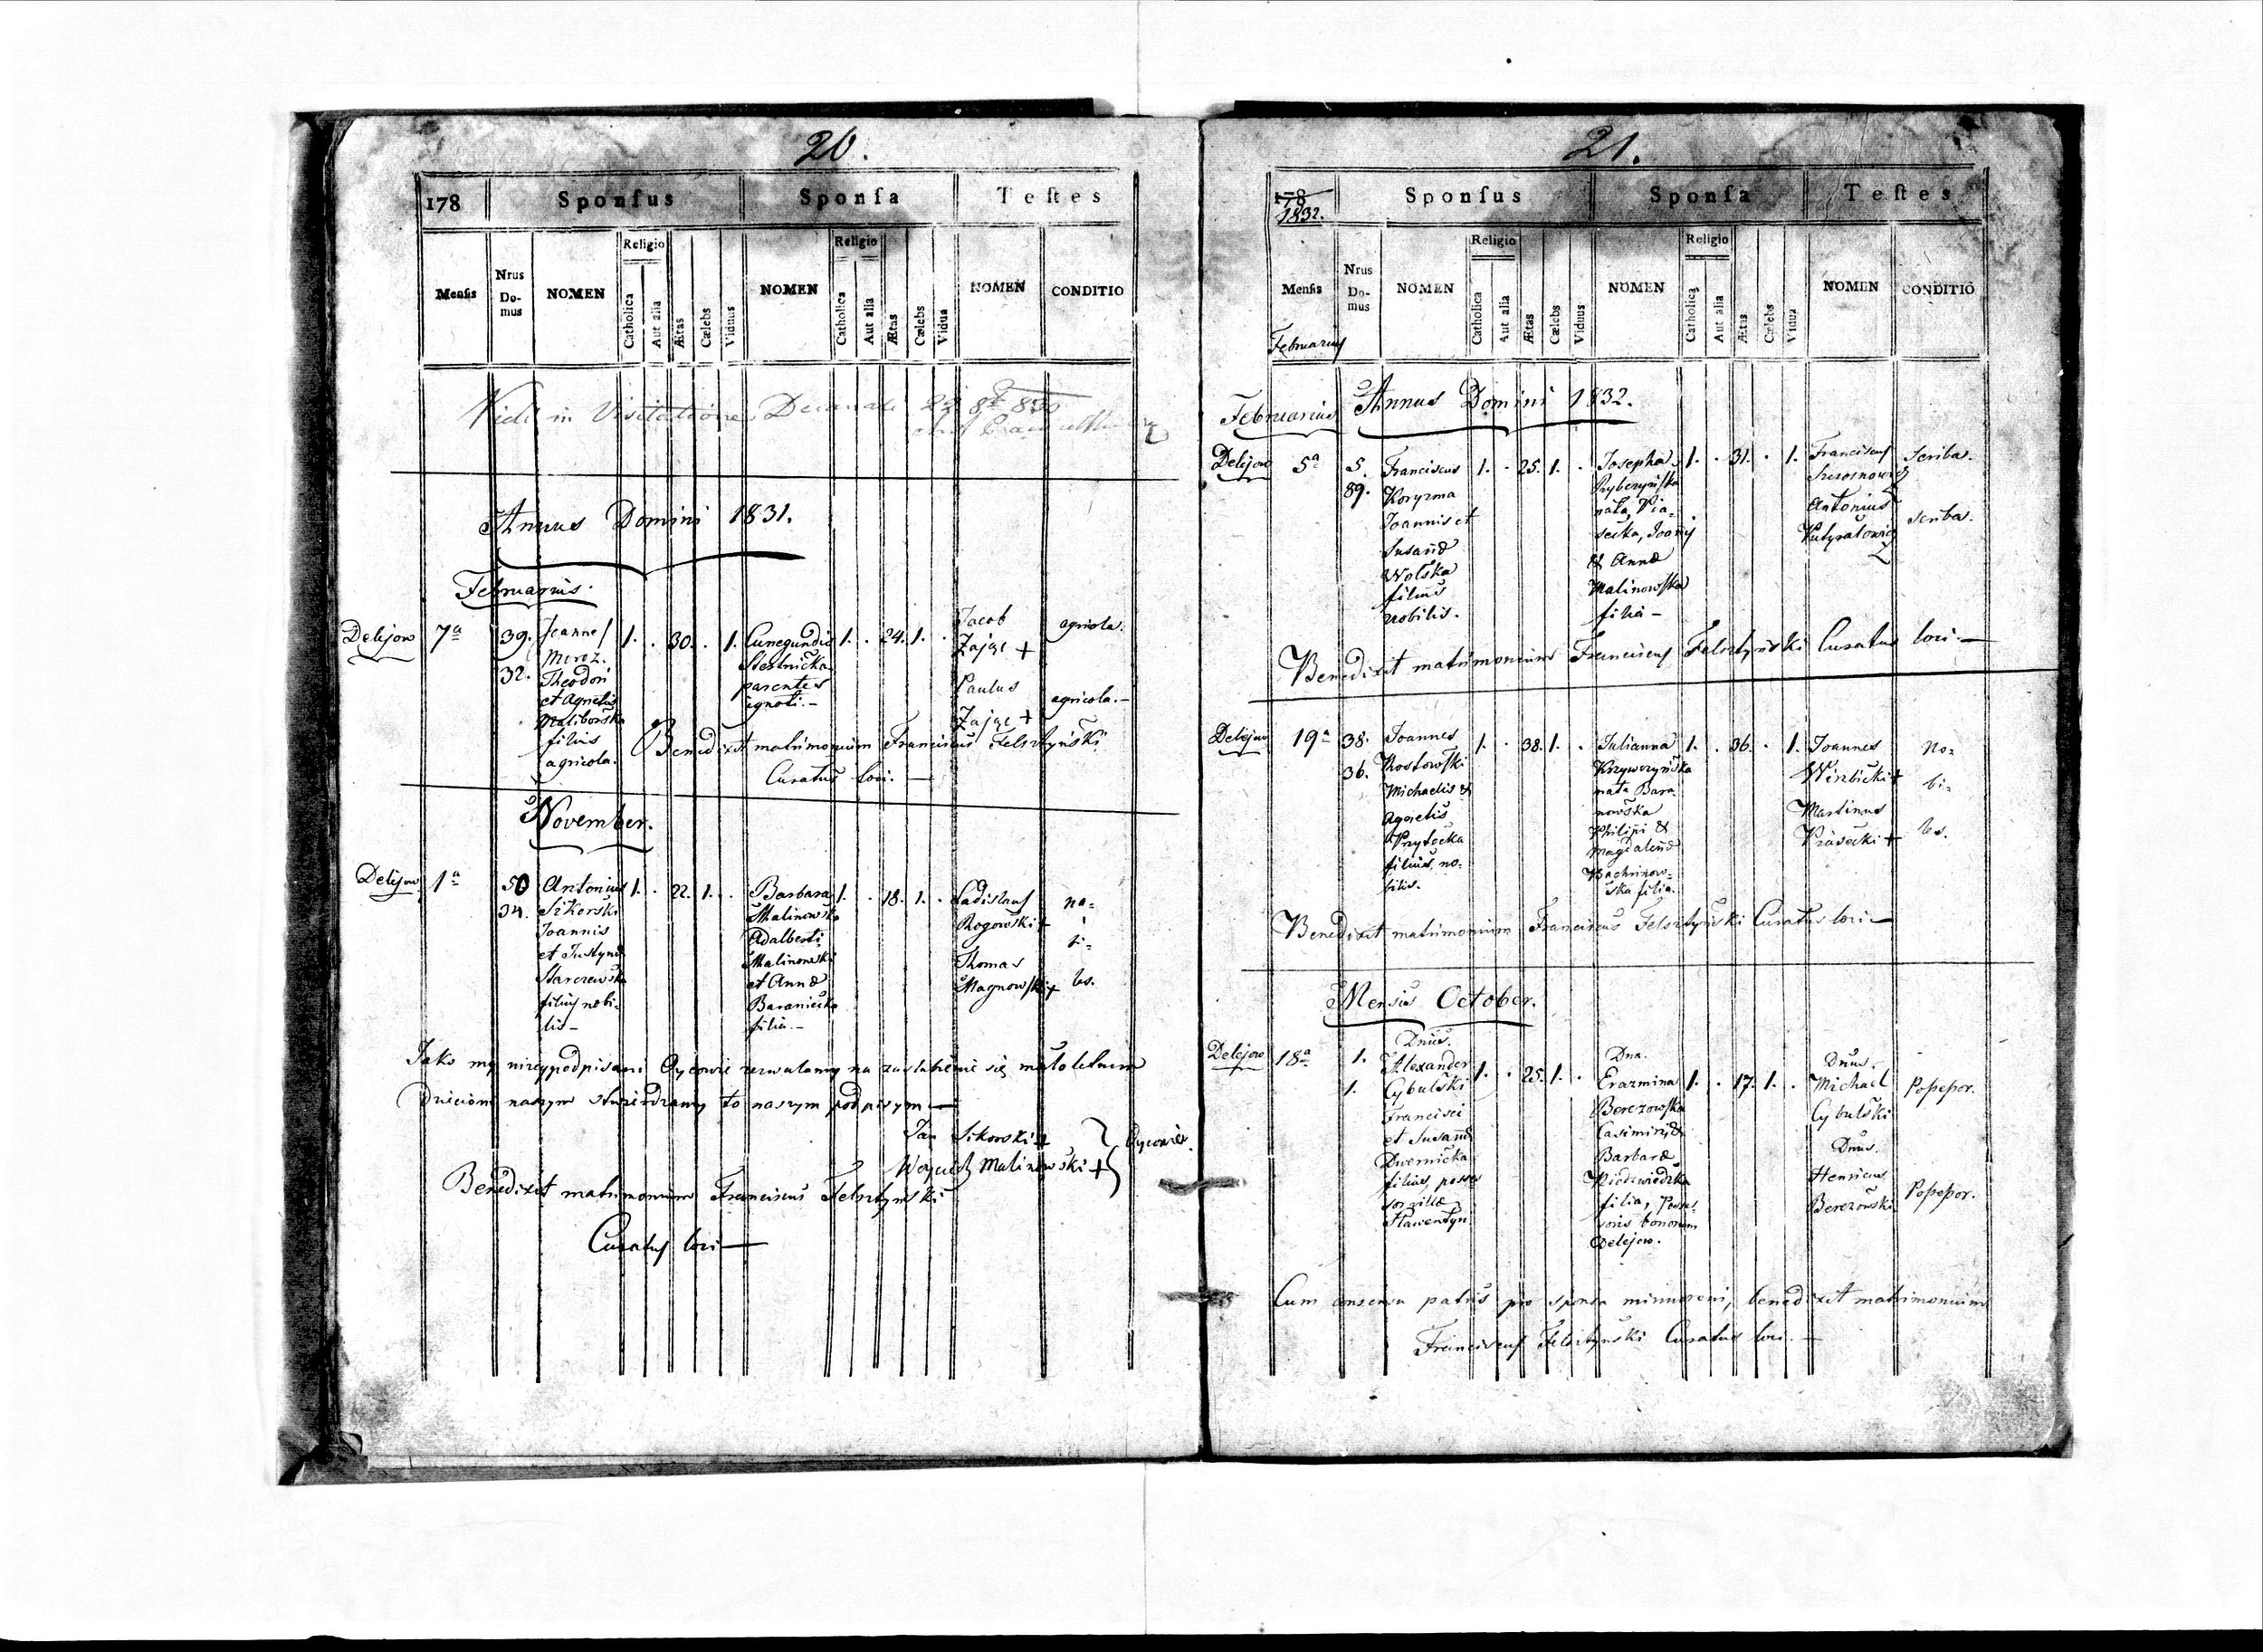 20.
178 Sponſus Sponſa Teſtes
Religio Religio
Menſis Nrus Do-mus NOMEN Catholica Aut alia Ætas Cælebs Viduus NOMEN Catholica Aut alia Ætas Cælebs Vidua NOMEN CONDITIO
Vidi in Visitatione Decanali
Annus Domini 1831.
Februarius.
Delejow 7a
39.
32.
Joannes
Mroz.
Theodori
et Agnetis
filius
agricola.
1. . 30. . 1.
Cunegundis
parentes
ignoti.–
1. . 24. 1. .
Jacob
Zając +
Paulus
Zając +
agricola.
agricola.–
Benedixit matrimonium Franciscus Felsztyński
Curatus loci.—
November.
Delejow 1a
50
34.
Antonius
Sikorski
Joannis
et Justynæ
Starczewska
filius nobi-
lis–
1. . 22. 1. .
Barbara
Malinowska
Adalberti
Malinowski
et Annæ
Baraniecka
filia.–
1. . 18. 1. .
Ladislaus
Rogowski +
Thomas
Magnowski +
no-
bi-
les.
Jako my niżej podpisani Oycowie zezwalamy na zaslubienie się małoletnim
Dzieciom naszym stwierdzamy to naszym podpisym—
Jan Sikorski +
Woyciech Malinowski + } Oycowie.
Benedixit matrimonium Franciscus Felsztyński
Curatus loci—
21.
178 Sponſus Sponſa Teſtes
1832.
Religio Religio
Menſis Nrus Do-mus NOMEN Catholica Aut alia Ætas Cælebs Viduus NOMEN Catholica Aut alia Ætas Cælebs Vidua NOMEN CONDITIO
Februarius
Februarius Annus Domini 1832.
Delejow 5a
5.
89.
Franciscus
Koryzma
Joannis et
Susannæ
Wolska
filius
nobilis.
1. . 25. 1. .
Josepha
nata, Pia-
secka, Joannis
& Annæ
Malinowska
filia–
1. . 31. . 1.
Franciscus
Antonius
Scriba.
Scriba.
Benedixit matrimonium Franciscus Felsztyński Curatus loci—
Delejow 19a
38.
36.
Joannes
Rostowski
Michaelis &
Agnetis
Przytocka
filius, no-
bilis.
1. . 38. 1. .
Julianna
Krzyworzyńska
nata Bara
nowska
Philipi &
Magdalenæ
Wachninow-
ska filia.
1. . 36. . 1.
Joannes
Wierzbicki +
Martinus
Piasecki +
no-
bi-
les.
Benedixit matrimonium Franciscus Felsztyński Curatus loci—
Mensis October.
Delejow 18a
1.
1.
Dnus.
Alexander
Cybulski
Francisci
et Susannæ
Dwernicka
filius, posses
sor villæ
1. . 25. 1. .
Dna.
Erazmina
Berezowska
Casimiri &
Barbaræ
Niedzwiedzka
filia, Posses-
soris bonorum
Delejow.
1. . 17. 1. .
Dnus.
Michael
Cybulski
Dnus.
Henricus
Berezowski
Possesor.
Possesor.
Cum consensu patris pro sponsa minoreni, benedixit matrimonium
Franciscus Felsztyński Curatus loci.—